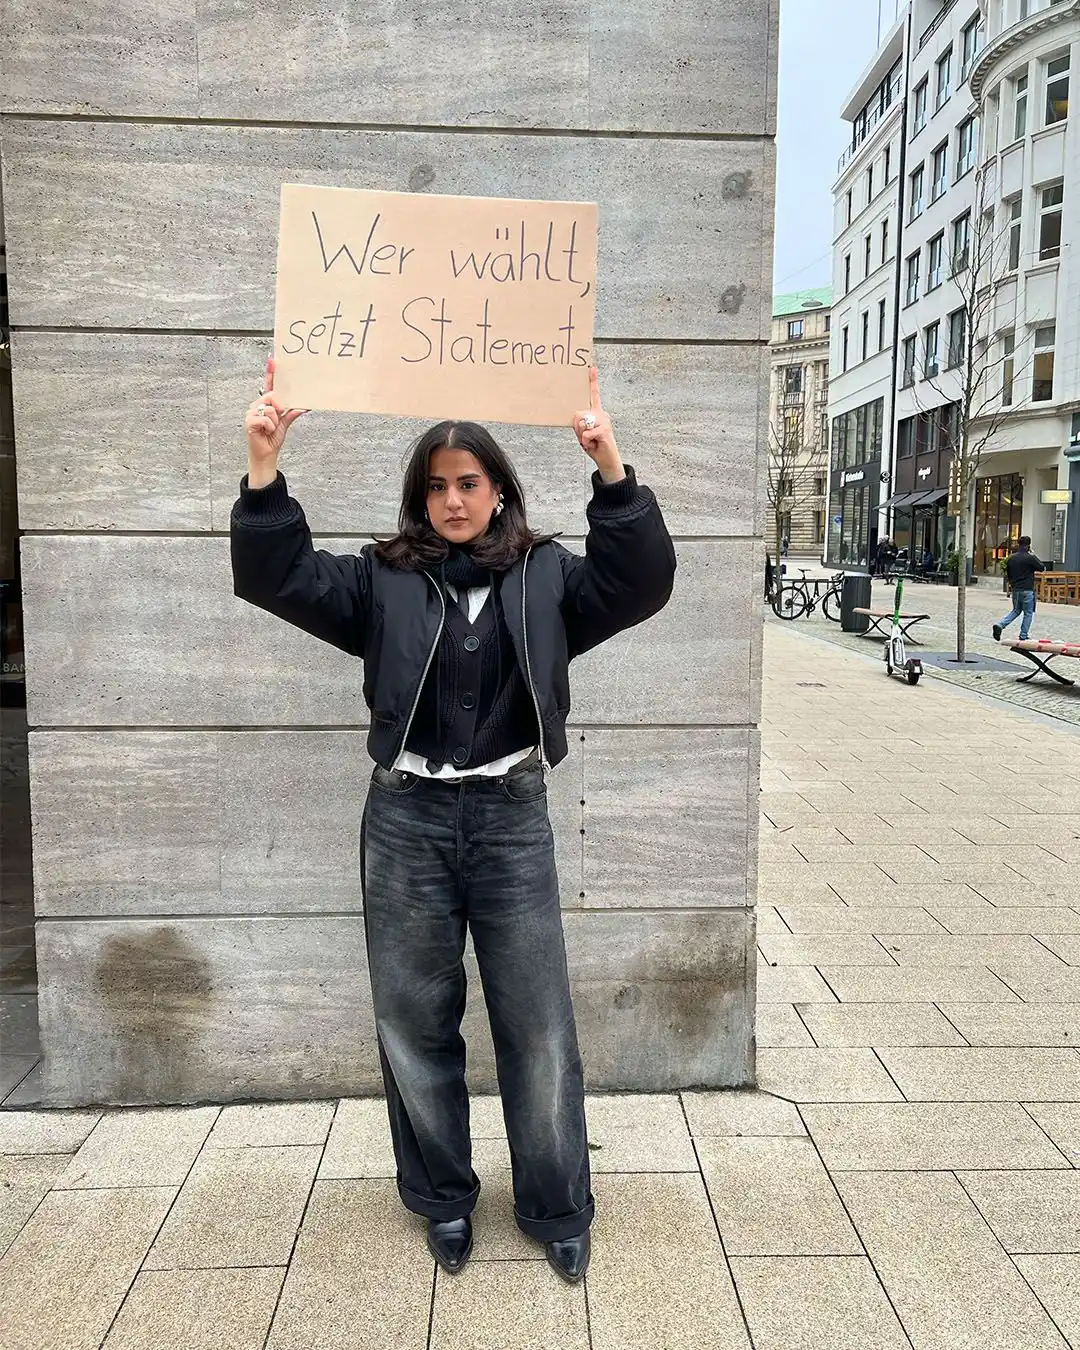 Wer wählt,
setzt Statements.
BAN